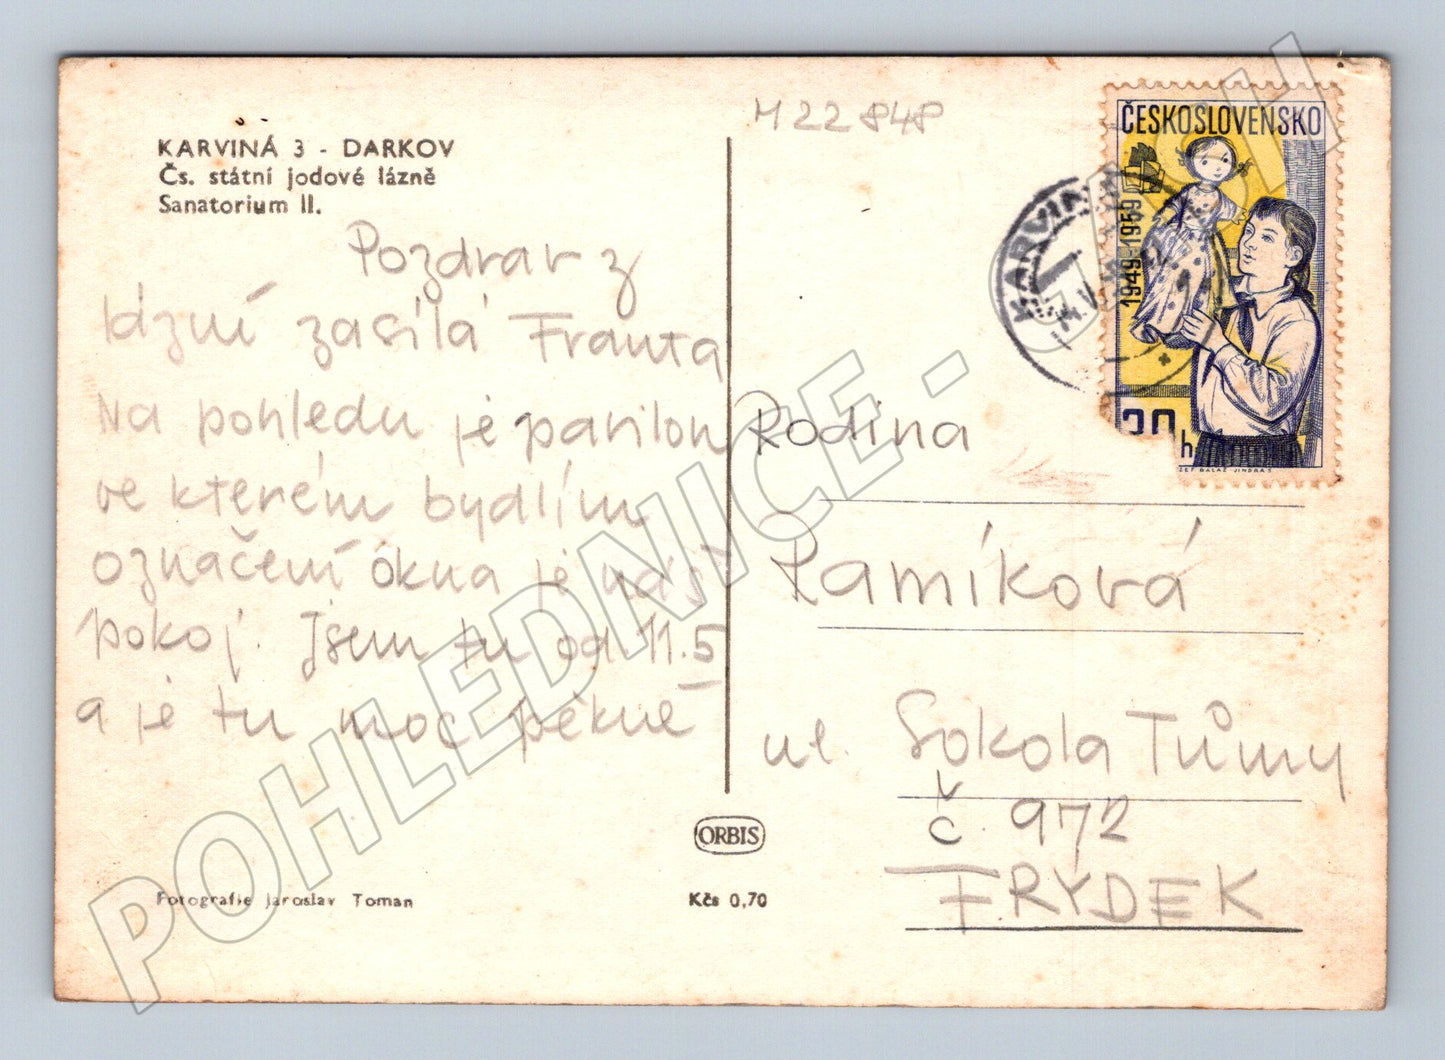 KARVINÁ 3 - DARKOV
Čs. státní jodové lázně
Sanatorium II.
Pozdrav z
lázní zasílá Franta
Na pohledu je pavilon
ve kterém bydlím
označení okna je náš
pokoj. Jsem tu od 11.5
a je tu moc pěkně
Fotografie Jaroslav Toman
ORBIS
Kčs 0,70
M 22 848
ČESKOSLOVENSKO
1949-1959
30 h
JINDRA
KARVINÁ
Rodina
Ramíková
ul. Sokola Tůmy
č. 972
FRÝDEK
POHLEDNICE -